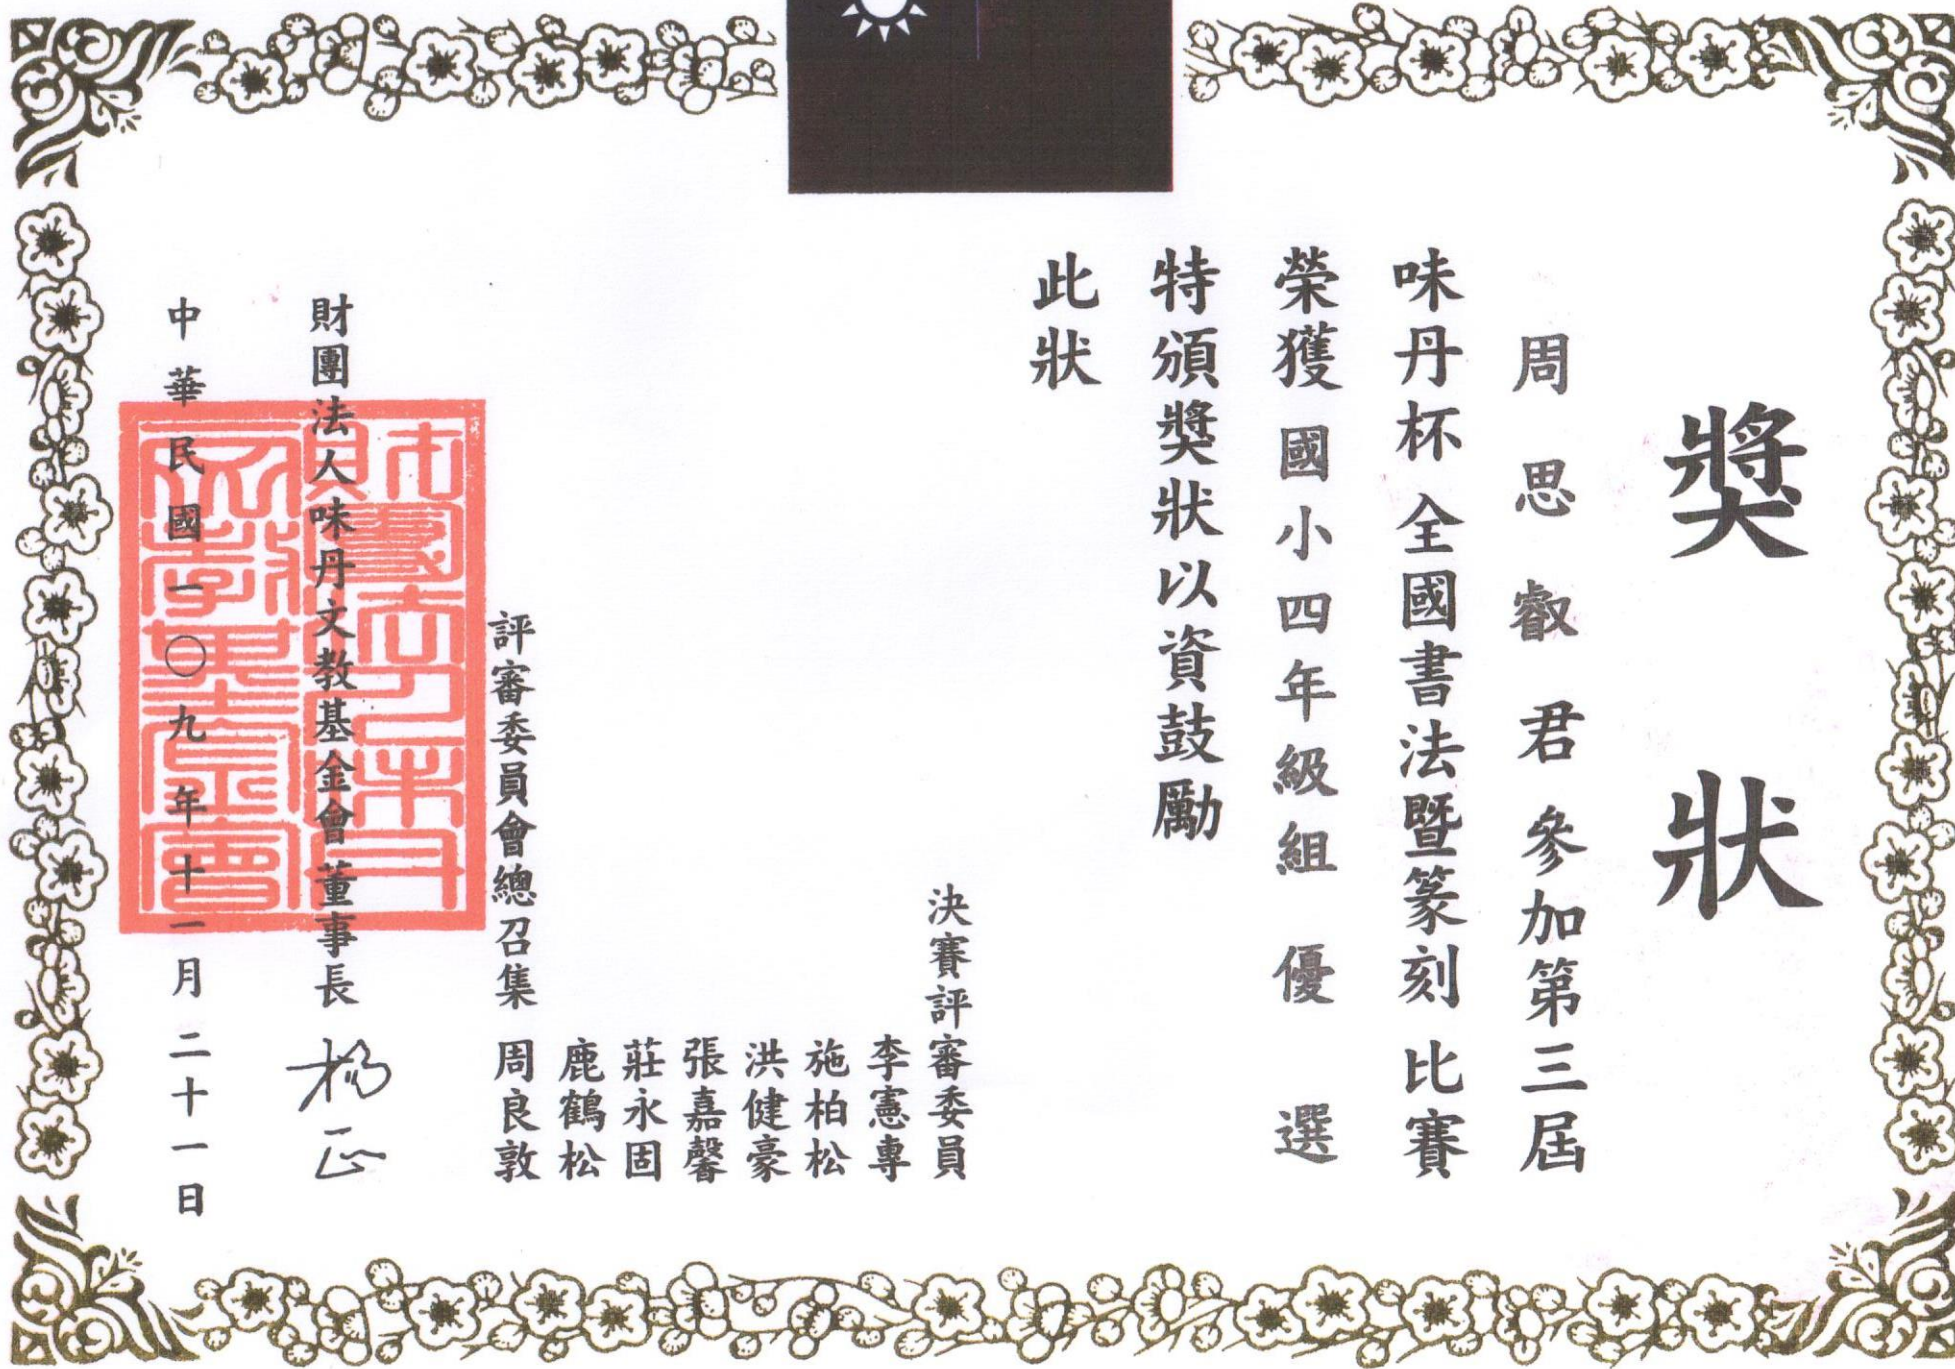 獎狀
周思叡君參加第三屆
味丹杯全國書法暨篆刻比賽
榮獲國小四年級組優選
特頒獎狀以資鼓勵
此狀
決賽評審委員
李憲專
施柏松
洪健豪
張嘉馨
莊永固
鹿鶴松
評審委員會總召集 周良敦
財團法人味丹文教基金會董事長
中華民國一〇九年十一月二十一日